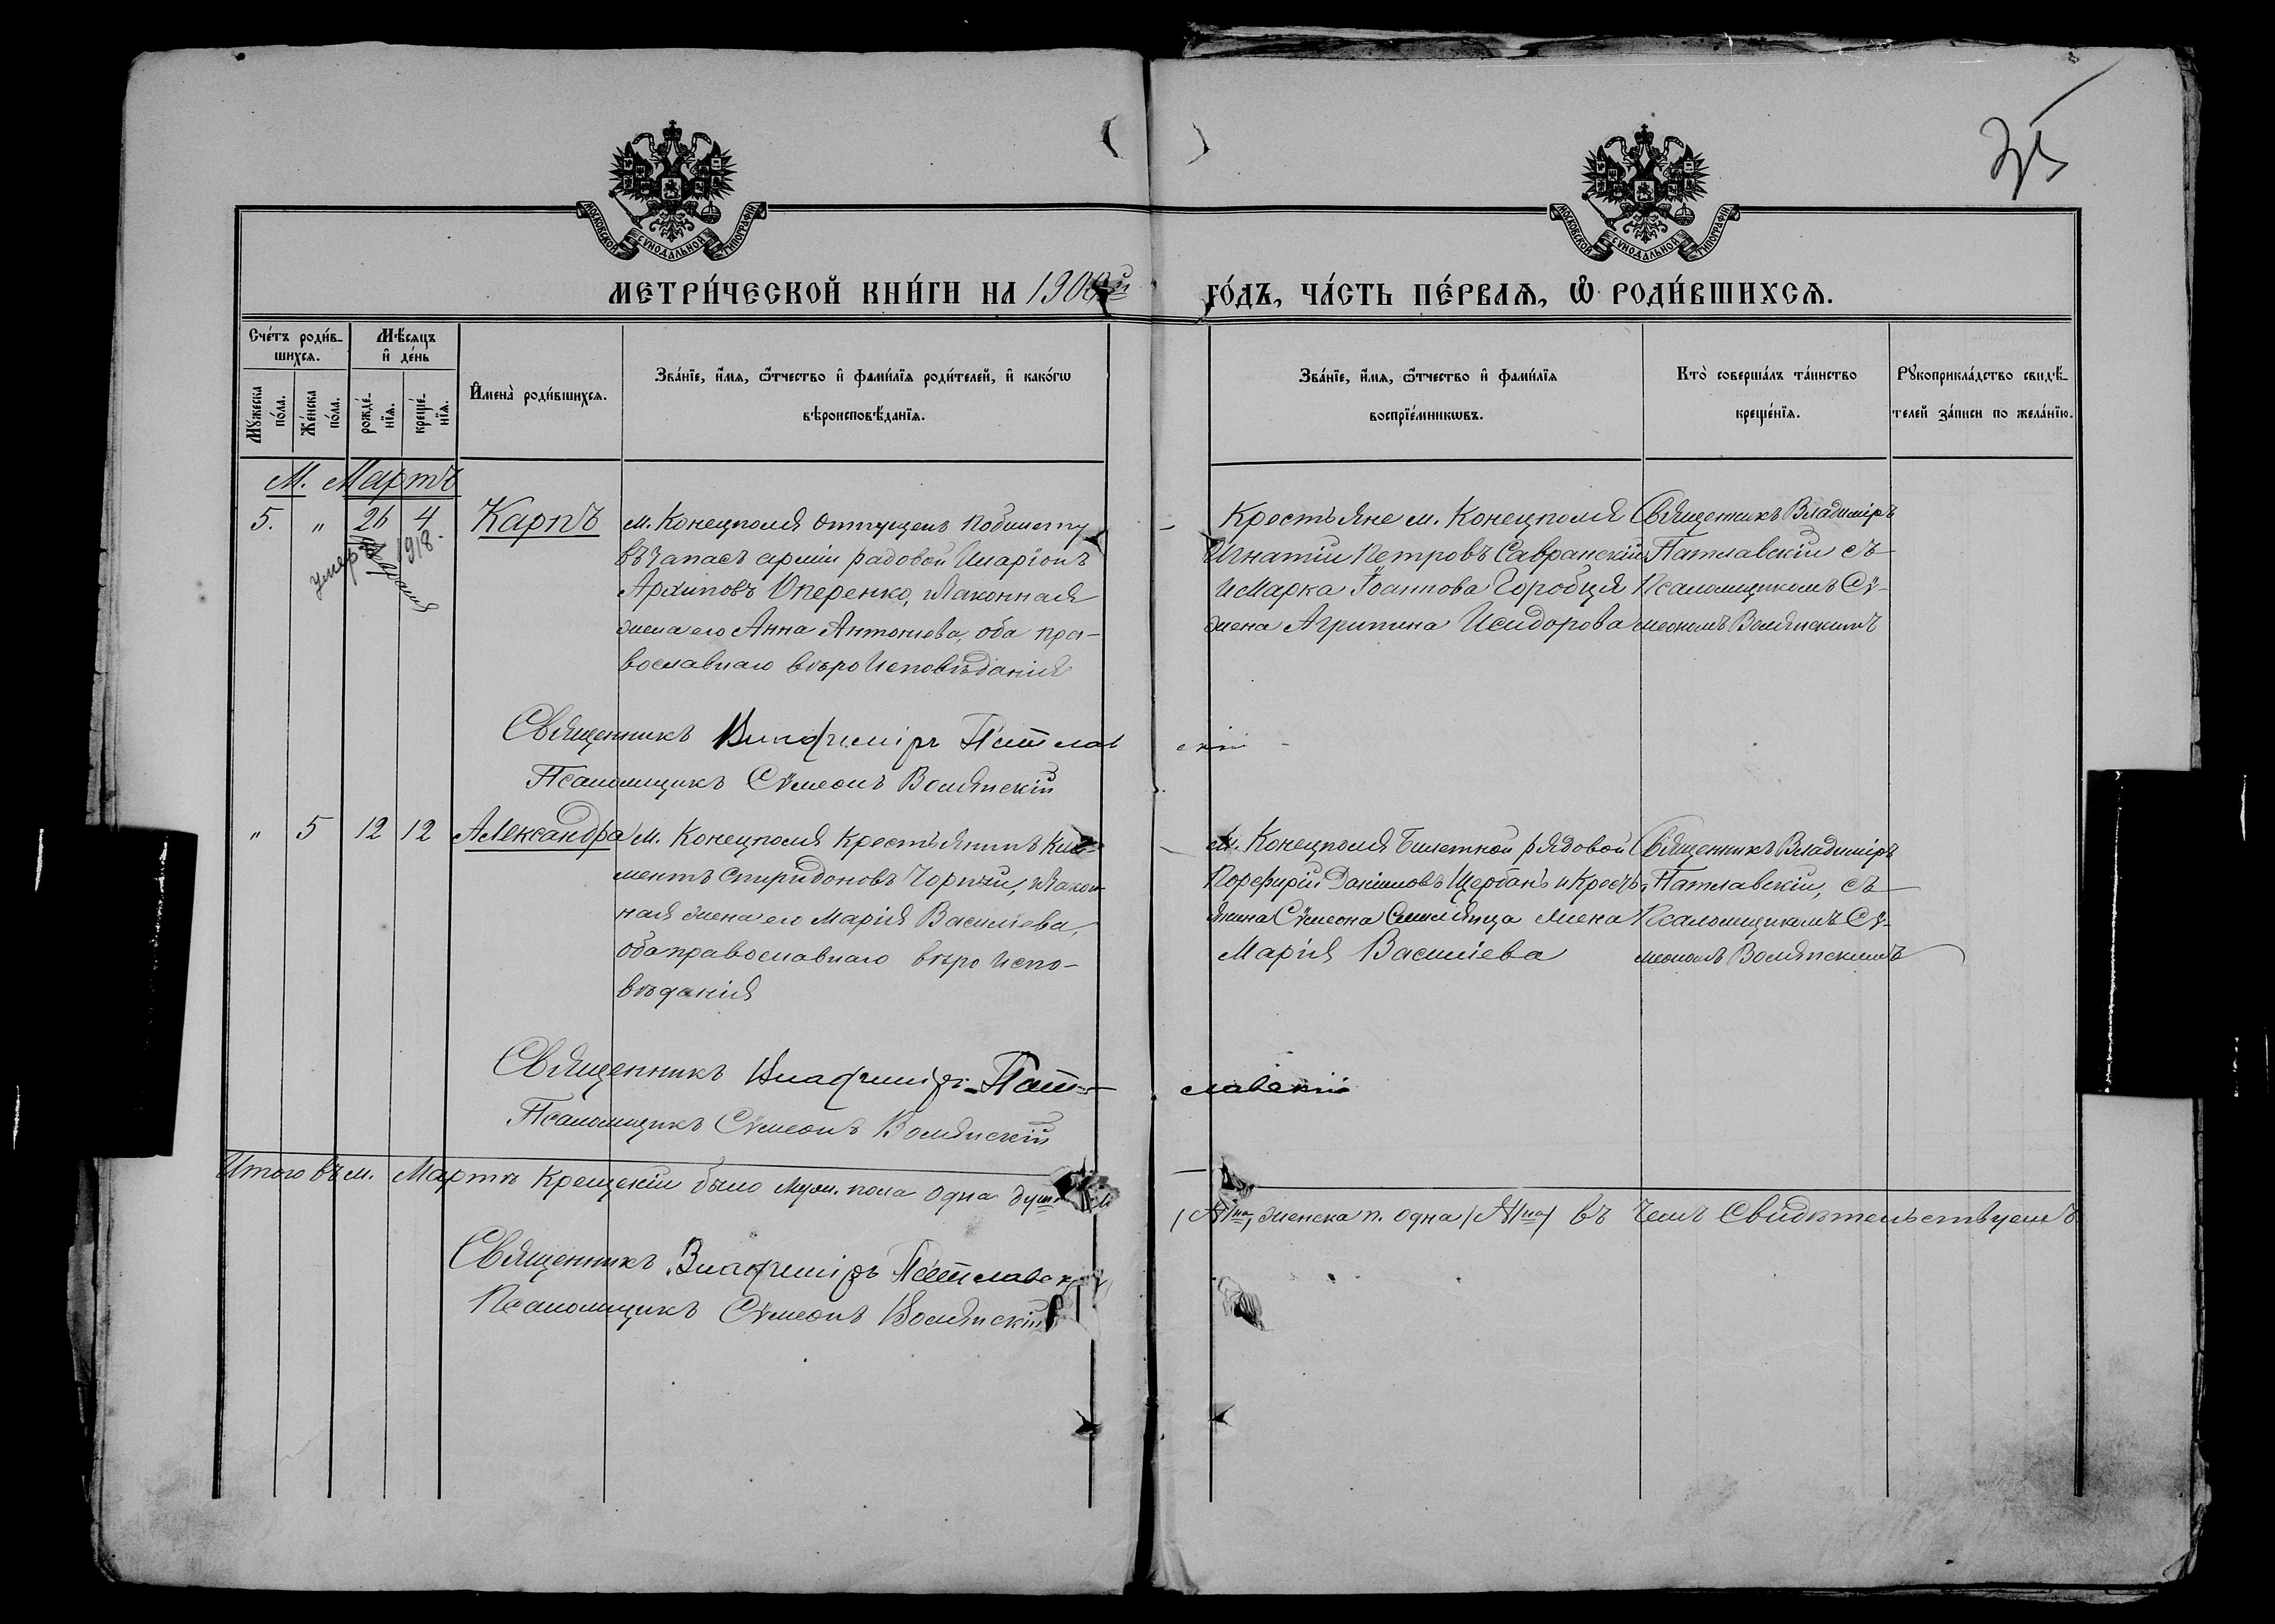 35
МОСКОВСКОЙ СѴНОДАЛЬНОЙ ТИПОГРАФІИ
МОСКОВСКОЙ СѴНОДАЛЬНОЙ ТИПОГРАФІИ
МЕТРИ́ЧЕСКОЙ КНИ́ГИ НА 1900й ГО́ДЪ, ЧА́СТЬ ПЕ́РВАѦ, Ѡ҆ РОДИ́ВШИХСѦ.
Сче́тъ роди́в-
шихсѧ.
Мꙋжеска по́ла.
Же́нска по́ла.
Мѣ́сѧцъ
и҆ де́нь
рожде́-
нїѧ.
креще́-
нїѧ.
И҆мена̀ роди́вшихсѧ.
Зва́нїе, и҆́мѧ, ѻ҆́тчество и҆ фами́лїѧ роди́телей, и҆ како́гѡ
вѣроисповѣ́данїѧ.
Зва́нїе, и҆́мѧ, ѻ҆́тчество и҆ фами́лїѧ
воспрїе́мникѡвъ.
Кто̀ соверша́лъ та́инство
креще́нїѧ.
Рꙋкоприкла́дство свидѣ́-
телей за́писи по жела́нїю.
М. Мартъ
5. " 26 4 Карпъ
умеръ
1918.
м. Конецполя отпущенъ по билету
въ запасъ арміи рядовой Иларіонъ
Архиповъ Оперенко, и законная
жена его Анна Антоніева, оба пра-
вославнаго вѣроисповѣданія
Крестьяне м. Конецполя
Игнатій Петровъ Савранскій
и Марка Іоаннова Горобця
жена Агрипина Исидорова
Священникъ Владиміръ
Патлавскій съ
Псаломщикомъ Сѵ-
меономъ Волянскимъ
Священникъ Владиміръ Патлавскій
Псаломщикъ Сѵмеонъ Волянскій
" 5 12 12 Александра
м. Конецполя Крестьянинъ Кли-
ментъ Спиридоновъ Чорный, и закон-
ная жена его Марія Василіева,
оба православнаго вѣроиспо-
вѣданія
м. Конецполя Билетной рядовой
Порфирій Даніиловъ Щербанъ и Кресть-
янина Сѵмеона жена
Марія Василіева
Священникъ Владиміръ
Патлавскій, съ
Псаломщикомъ Сѵ-
меономъ Волянскимъ
Священникъ Владиміръ Патлавскій
Псаломщикъ Сѵмеонъ Волянскій
Итого въ м. Мартѣ Крещеній было Муж. пола одна душа
женска п. одна въ чемъ Свидѣтельствуемъ
Священникъ Владиміръ Патлавскій
Псаломщикъ Сѵмеонъ Волянскій